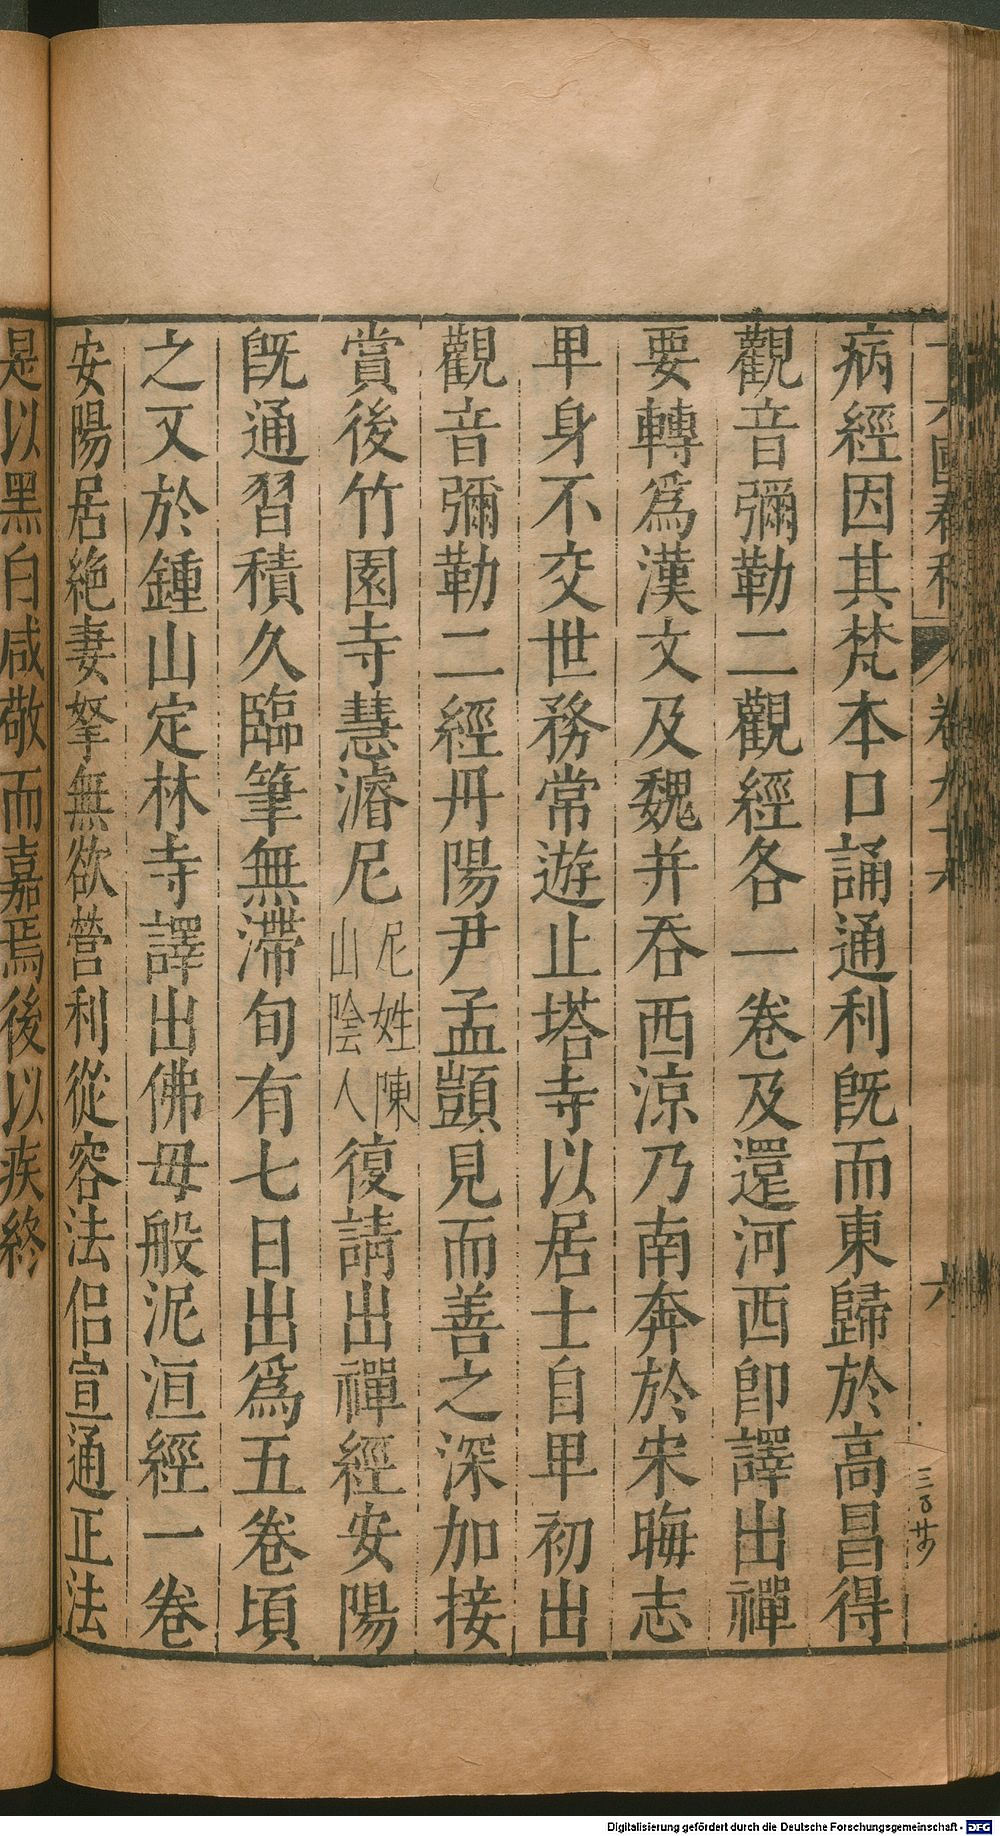 十六國春秋 卷九十六 六
病經因其梵本口誦通利旣而東歸於高昌得
觀音彌勒二觀經各一卷及還河西卽譯出禪
要轉爲漢文及魏并吞西涼乃南奔於宋晦志
𤰞身不交世務常遊止塔寺以居士自𤰞初出
觀音彌勒二經丹陽尹孟顗見而善之深加接
賞後竹園寺慧濬尼尼姓陳山陰人復請出禪經安陽
旣通習積久臨筆無滯旬有七日出爲五卷頃
之又於鍾山定林寺譯出佛毋般泥洹經一卷
安陽居絶妻孥無欲營利從容法侶宣通正法
是以黑白咸敬而嘉焉後以疾終
Digitalisierung gefördert durch die Deutsche Forschungsgemeinschaft - DFG